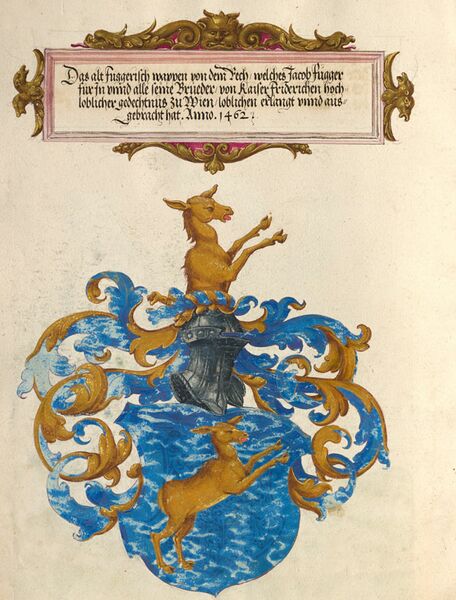 Das alt fuggerisch wappen von dem Rech, welches Jacob fugger
für jn vnnd alle seine Brüeder von Kaiser friderichen hoch
loblicher gedechtnus zu Wien loblichen erlangt vnnd aus-
gebracht hat. Anno. 1462.